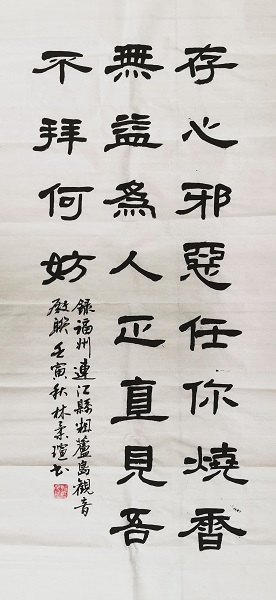 存心邪惡任你燒香
無益為人正直見吾
不拜何妨
錄福州連江縣粗蘆島觀音
殿聯壬寅秋林景瑄书